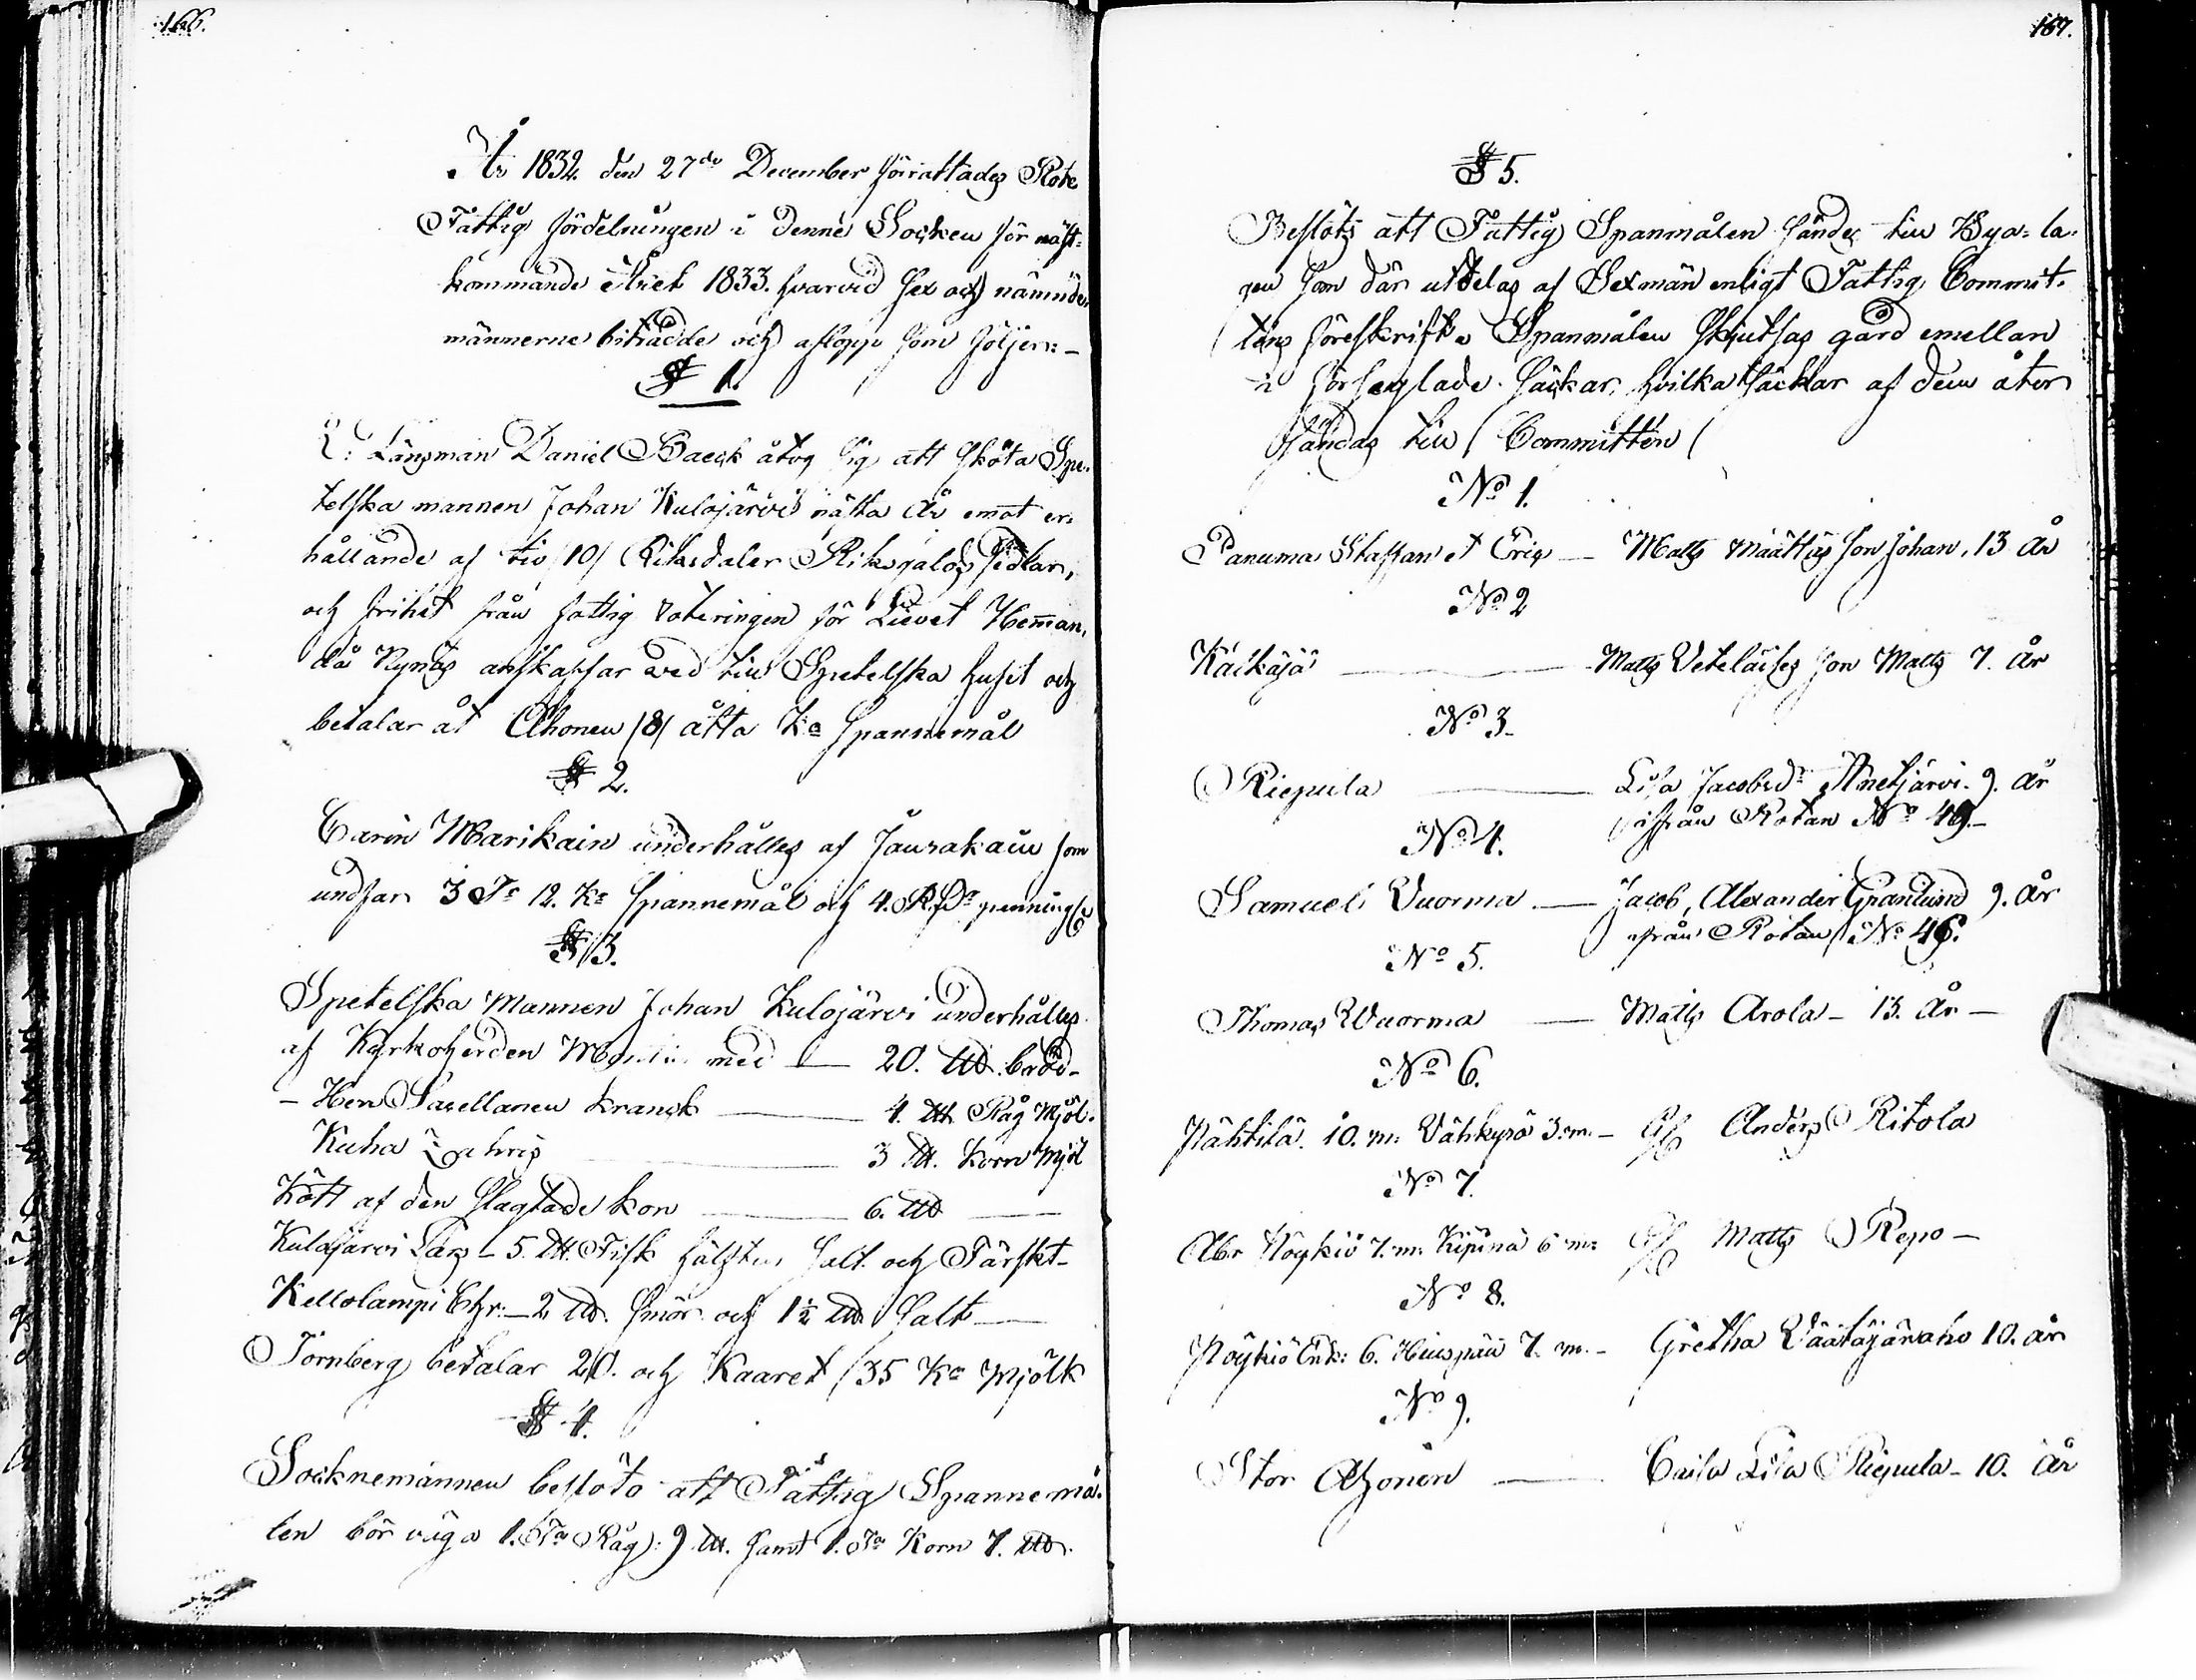 166.
År 1832 den 27de December förrättades Rote
Fattig fördelningen i denne Socken för näst-
kommande Året 1833. hvarvid sex och nämnde-
männerne biträdde och aflopp som följer: -
§ 1.
L: Länsman Daniel Baeck åtog sig att sköta Spe-
telska mannen Johan Kulojärvi nästa År emot er-
hållande af tio /10/ Riksdaler Riksgalds sedlar,
och frihet från fattig roteringen för Lievet Hemman,
då Nynäs anskaffar ved till Spetelska huset och
betalar åt Ahonen /8/ åtta Ka Spannemål
§ 2.
Carin Marikain underhålles af Jaurakain som
undfår 3 Ta 12. Ka Spannemål och 4. Rda penning
§ 3.
Spetelska Mannen Johan Kulojärvi underhålles
af Kyrkoherden med — 20. ℔ bröd -
- Herr Sacellanen Kranck — 4. ℔ Råg Mjöl.
Kuha Zachris — 3 ℔. Korn Mjöl
Kött af den slagtade kon — 6. ℔ —
Kulojärvi Lars - 5. ℔. Fisk hälften salt och Färskt -
Kellolampi Chr: - 2 ℔. smör och 1½ ℔ Salt —
Törnberg betalar 20. och Kaaret /35 Ka Mjölk
§ 4.
Socknemännen beslöto att Fattig Spannemå-
len bör väga 1. Ta Råg: 9 ℔. samt 1. Ta Korn 7. ℔.
167.
§ 5.
Beslöts att Fattig Spanmålen sändes till Bya-la-
gen som där utdelas af Sexmän enligt Fattig Commit-
téns föreskrift. Spanmålen skjutsas gård emellan
i förseglade säckar, hvilka säckar af dem åter
sändas till Committén
No 1.
Panuma Staffan et Eric — Matts Määttäs son Johan, 13 År
No 2
Käikäjä — Matts Veteläises son Matts 7. År
No 3.
Riepula — Lisa Jacobsdr Änetjärvi. 9. År
ifrån Rotan No 49. -
No 4.
Samuel Vuorma — Jacob, Alexander Granlund 9. År
från Rotan No 46.
No 5.
Thomas Wuorma — Matts Arola - 13. År -
No 6.
Nähtilä. 10. m: Vähkyrö 3. m. - Anders Ritola
No 7.
Abr Nöykiö 7. m: Kipinä 6 m: Matts Repo -
No 8.
Nöykiö Enk: 6. Huispää 7. m. - Gretha Väätäjänaho 10. år
No 9.
Stor Ahonen — Caisa Lisa Riepula - 10. År